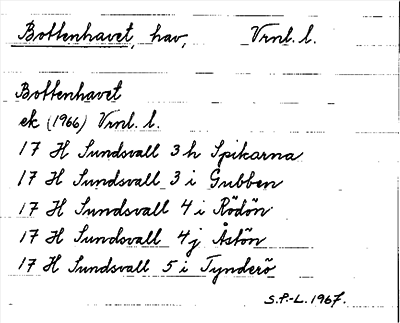 Bottenhavet, hav, Vrnl. l.
Bottenhavet
ek (1966) Vrnl. l.
17 H Sundsvall 3 h Spikarna
17 H Sundsvall 3 i Gubben
17 H Sundsvall 4 i Rödön
17 H Sundsvall 4 j Åstön
17 H Sundsvall 5 i Tynderö
S.P.-L. 1967.